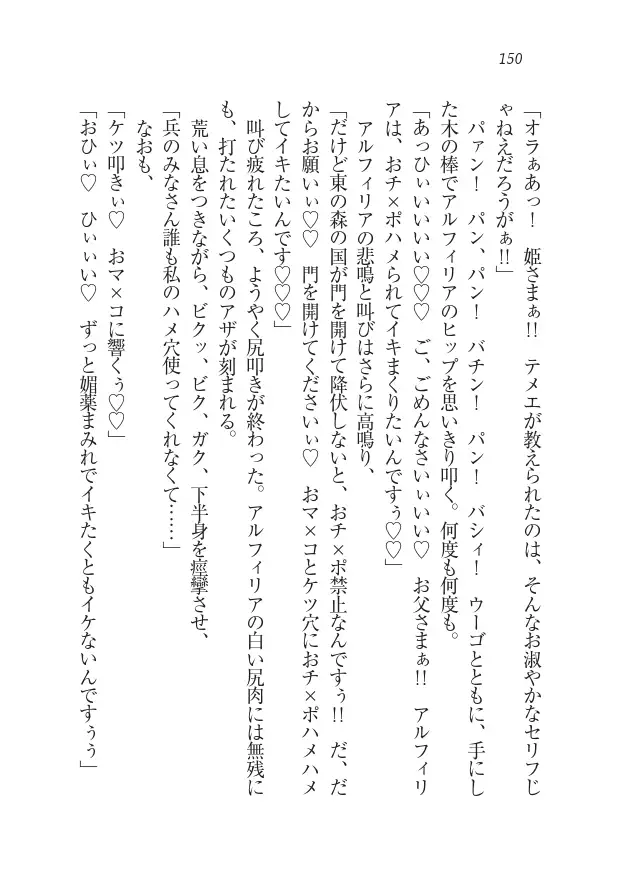 150
「オラぁあっ！　姫さまぁ!!　テメエが教えられたのは、そんなお淑やかなセリフじ
ゃねえだろうがぁ!!」
　パァン！　パン、パン！　バチン！　パン！　バシィ！　ウーゴとともに、手にし
た木の棒でアルフィリアのヒップを思いきり叩く。何度も何度も。
「あっひぃいいいい♡♡♡　ご、ごめんなさいぃいい♡　お父さまぁ!!　アルフィリ
アは、おチ×ポハメられてイキまくりたいんですぅ♡♡」
　アルフィリアの悲鳴と叫びはさらに高鳴り、
「だけど東の森の国が門を開けて降伏しないと、おチ×ポ禁止なんですぅ!!　だ、だ
からお願いぃ♡♡　門を開けてくださいぃ♡　おマ×コとケツ穴におチ×ポハメハメ
してイキたいんです♡♡♡」
　叫び疲れたころ、ようやく尻叩きが終わった。アルフィリアの白い尻肉には無残に
も、打たれたいくつものアザが刻まれる。
　荒い息をつきながら、ビクッ、ビク、ガク、下半身を痙攣させ、
「兵のみなさん誰も私のハメ穴使ってくれなくて……」
　なおも、
「ケツ叩きぃ♡　おマ×コに響くぅ♡♡」
「おひぃ♡　ひぃぃい♡　ずっと媚薬まみれでイキたくともイケないんですぅぅ」